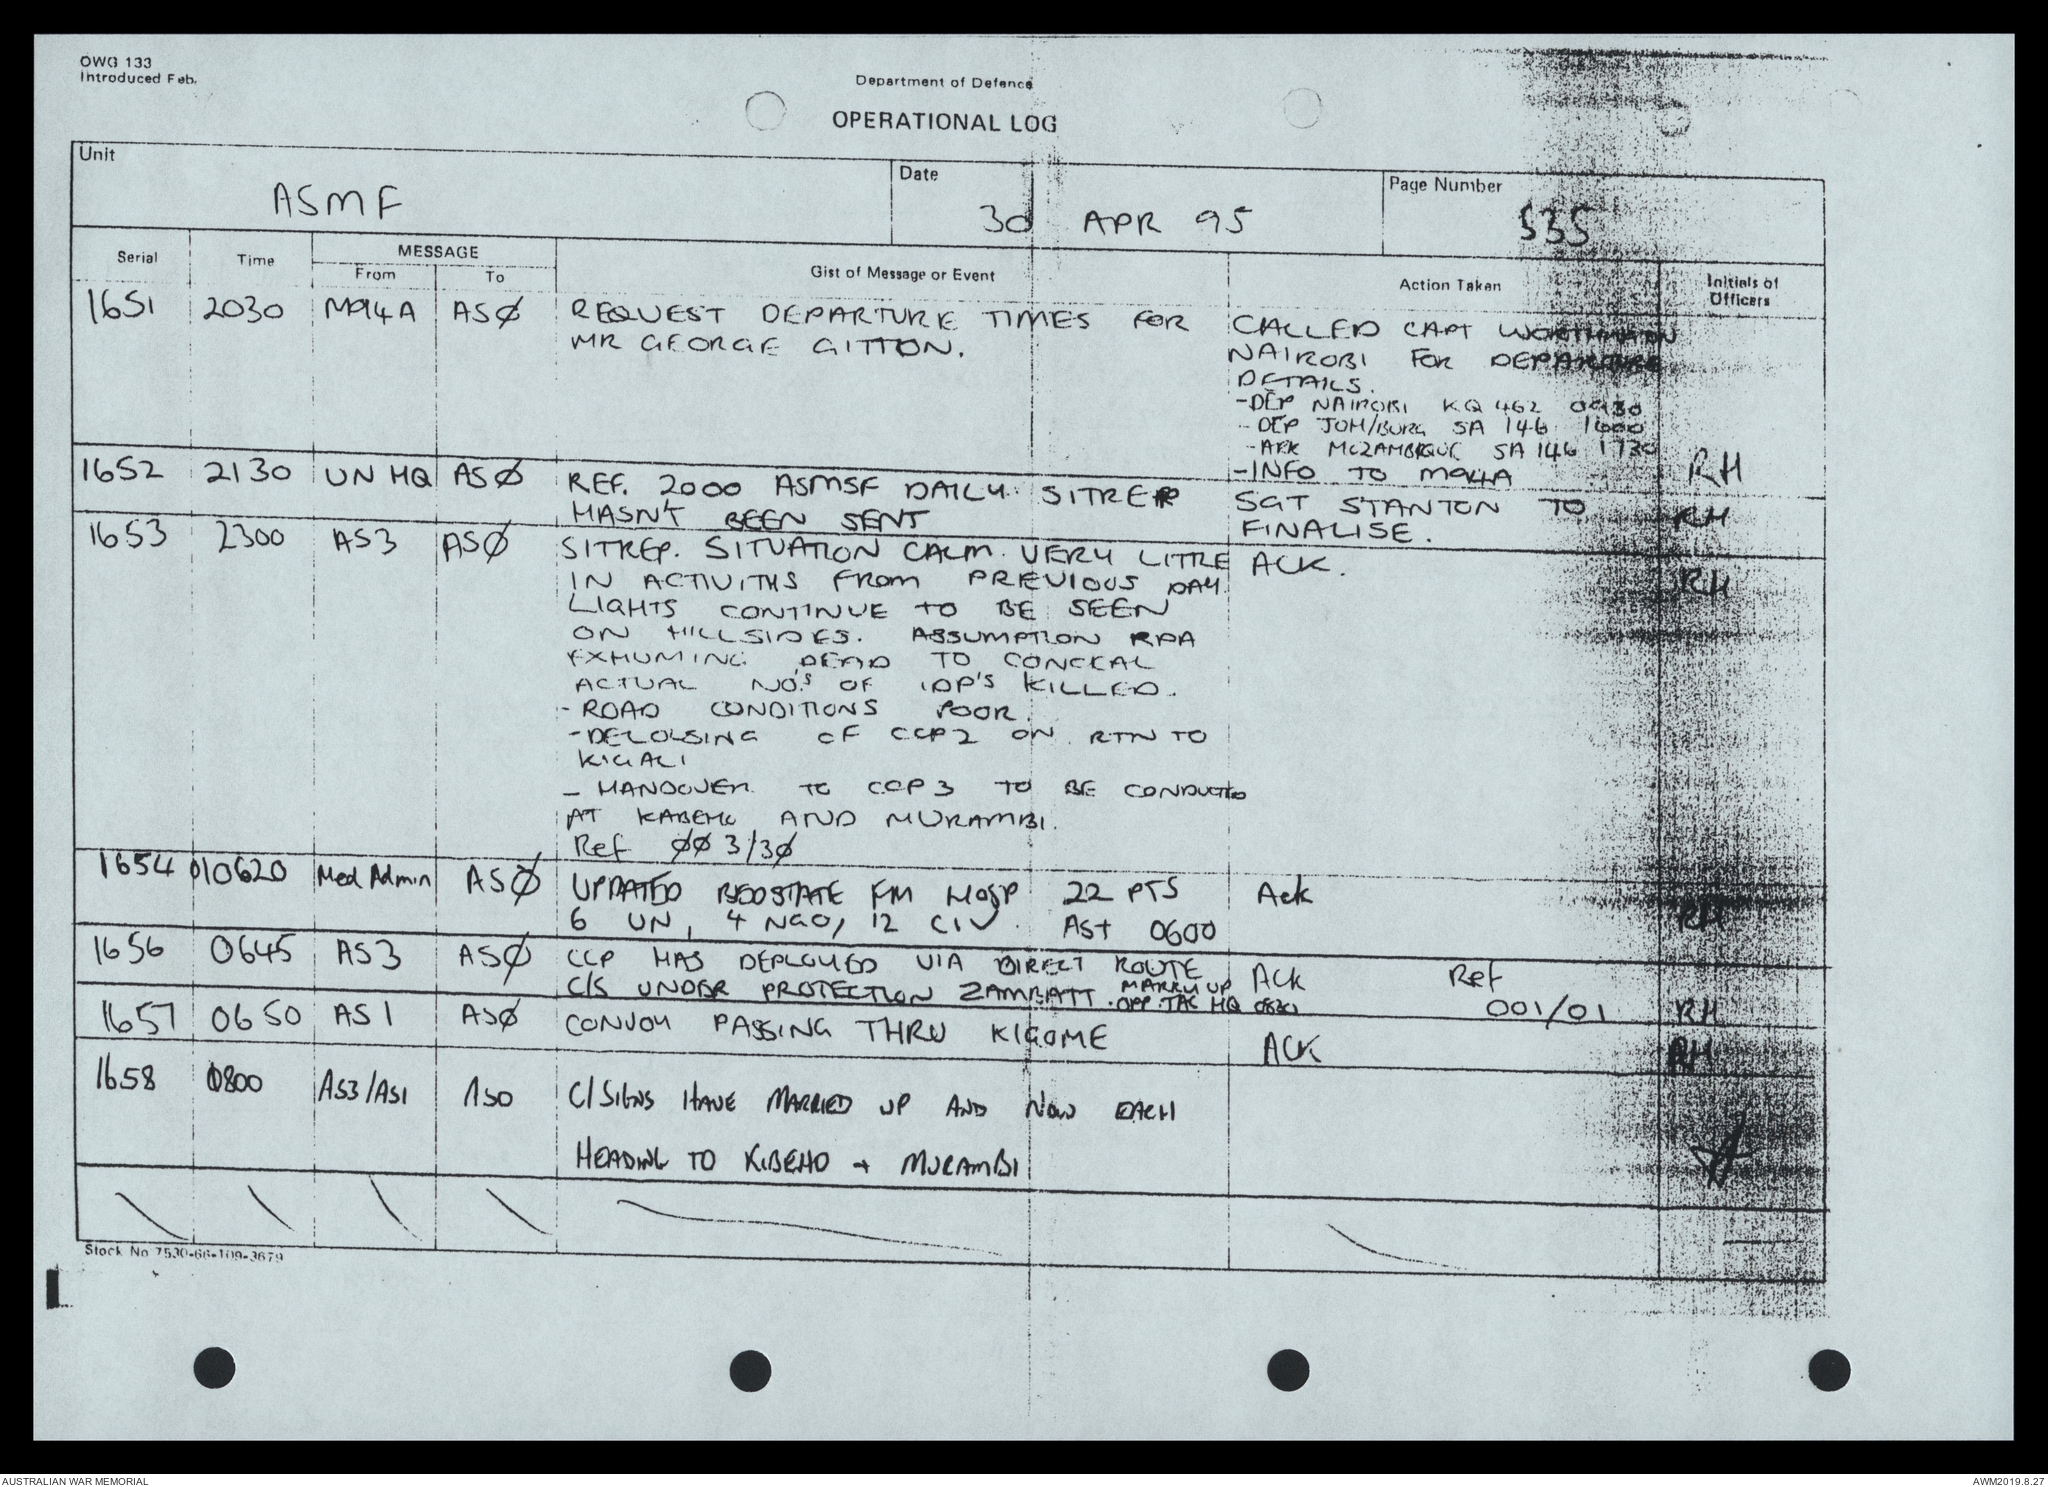 OWG 133
Introduced Feb.
Department of Defence
OPERATIONAL LOG
Unit
ASMF
Date
30 APR 95
Page Number
535
Serial
Time
MESSAGE
From
To
Gist of Message or Event
Action Taken
Initials of
Officers
1651 2030 M914A ASØ
REQUEST DEPARTURE TIMES FOR
MR GEORGE GITTON.
CALLED CAPT
NAIROBI FOR DEPARTURE
DETAILS.
-DEP NAIROBI KQ 462 0930
- DEP JOH/BURG SA 146 1600
- ARR MOZAMBIQUE SA 146 1730
-INFO TO M914A
RH
1652 2130 UN HQ ASØ
REF. 2000 ASMSF DAILY SITREP
HASN'T BEEN SENT
SGT STANTON TO
FINALISE.
RH
1653 2300 AS3 ASØ
SITREP. SITUATION CALM. VERY LITTLE
IN ACTIVITIS FROM PREVIOUS DAY.
LIGHTS CONTINUE TO BE SEEN
ON HILLSIDES. ASSUMPTION RPA
EXHUMING DEAD TO CONCEAL
ACTUAL NO'S OF IDP'S KILLED.
- ROAD CONDITIONS POOR.
- DELOUSING OF CCP2 ON RTN TO
KIGALI
- HANDOVER TO CCP3 TO BE CONDUCTED
AT KABEHO AND MURAMBI.
Ref ØØ3/3Ø
ACK.
RH
1654 010620 Med Admin ASØ
UPDATED BEDSTATE FM HOSP 22 PTS
6 UN, 4 NGO, 12 CIV. AST 0600
Ack
RH
1656 0645 AS3 ASØ
CCP HAS DEPLOYED VIA DIRECT ROUTE
C/S UNDER PROTECTION ZAMBATT. MARRY UP
OPP. TAC HQ 0830
ACK Ref
001/01
RH
1657 0650 AS1 ASØ
CONVOY PASSING THRU KIGOME
ACK
RH
1658 0800 AS3/AS1 ASO
C/SIGNS HAVE MARRIED UP AND NOW EACH
HEADING TO KIBEHO + MURAMBI
Stock No 7530-66-109-3679
AUSTRALIAN WAR MEMORIAL
AWM2019.8.27